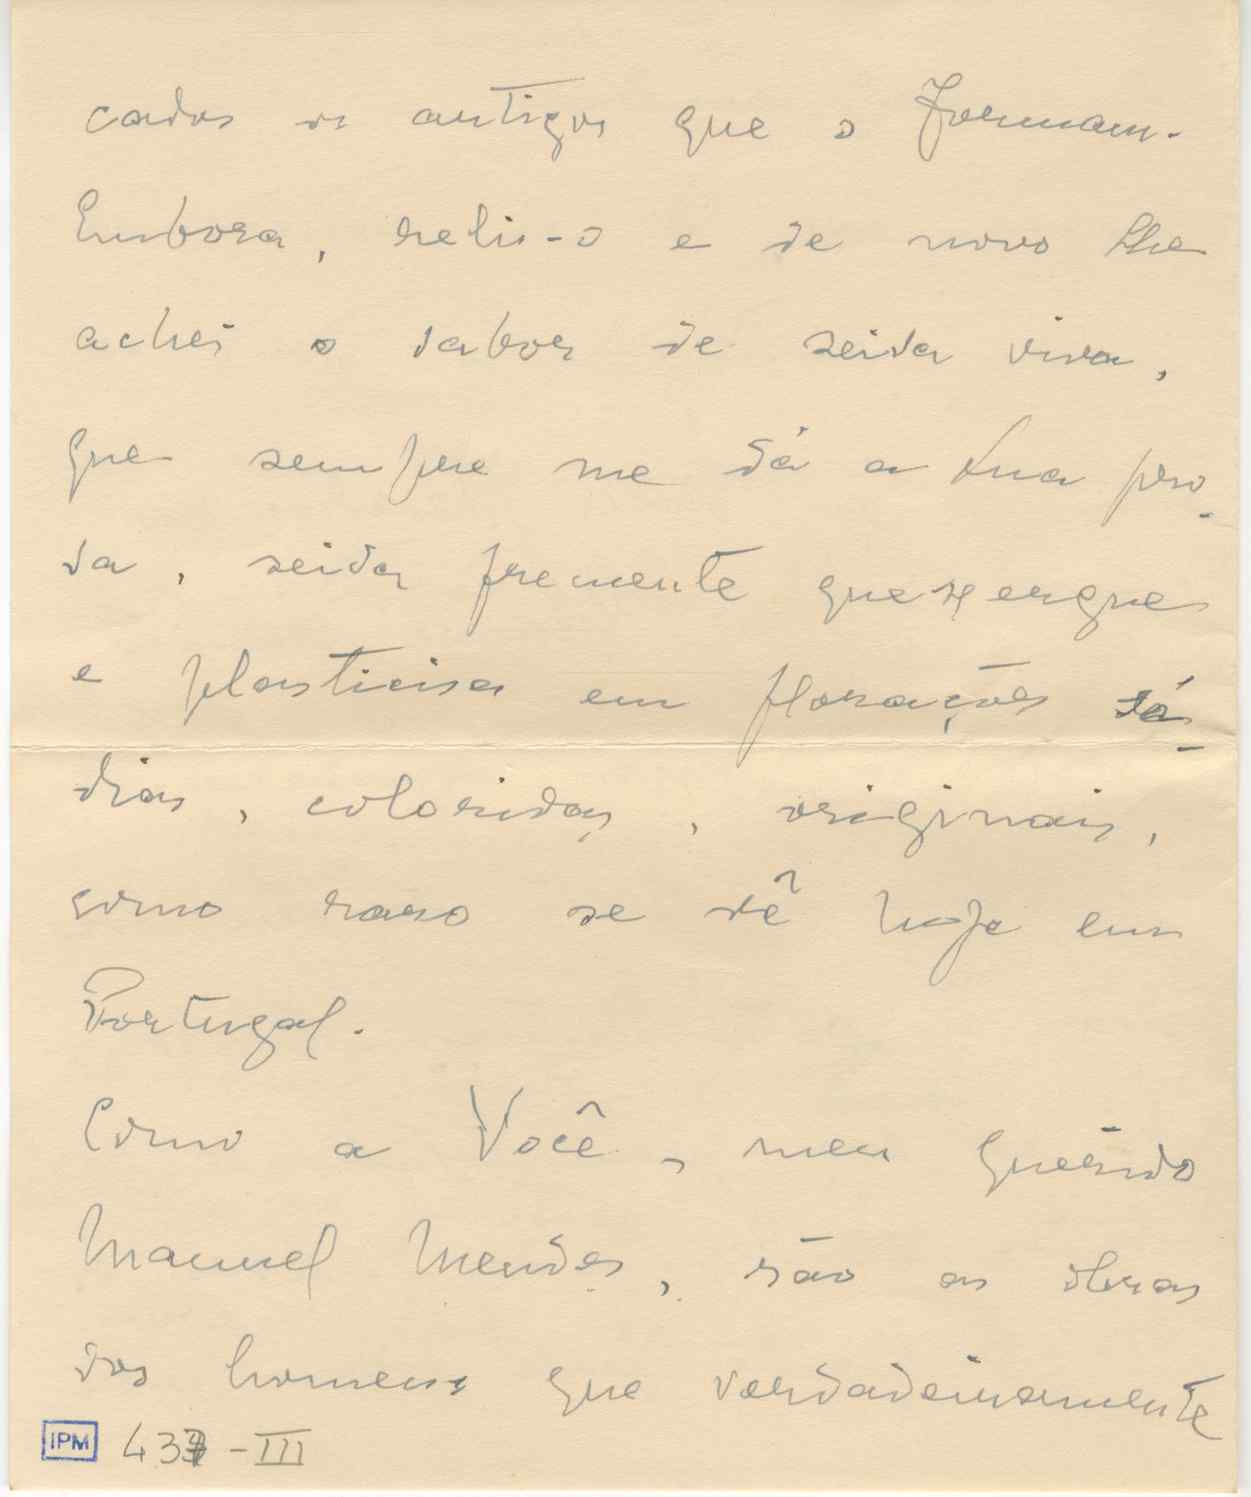 cados os artigos que o formam.
Embora, reli-o e de novo lhe
achei o sabor de seiva viva,
que sempre me dá a sua pro-
sa, seiva fremente que se ergue
e plasticisa em florações sá-
dias, coloridas, originais,
como raro se vê hoje em
Portugal.
Como a Você, meu querido
Manuel Mendes, são as obras
dos homens que verdadeiramente
IPM 437-III